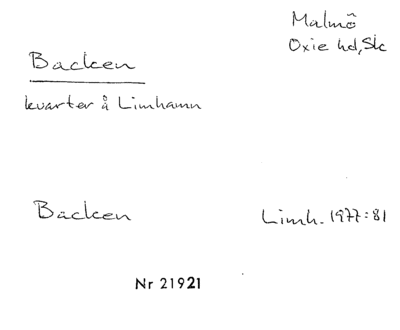 Malmö
Oxie hd, Sk
Backen
kvarter å Limhamn
Backen
Limh. 1977:81
Nr 21921